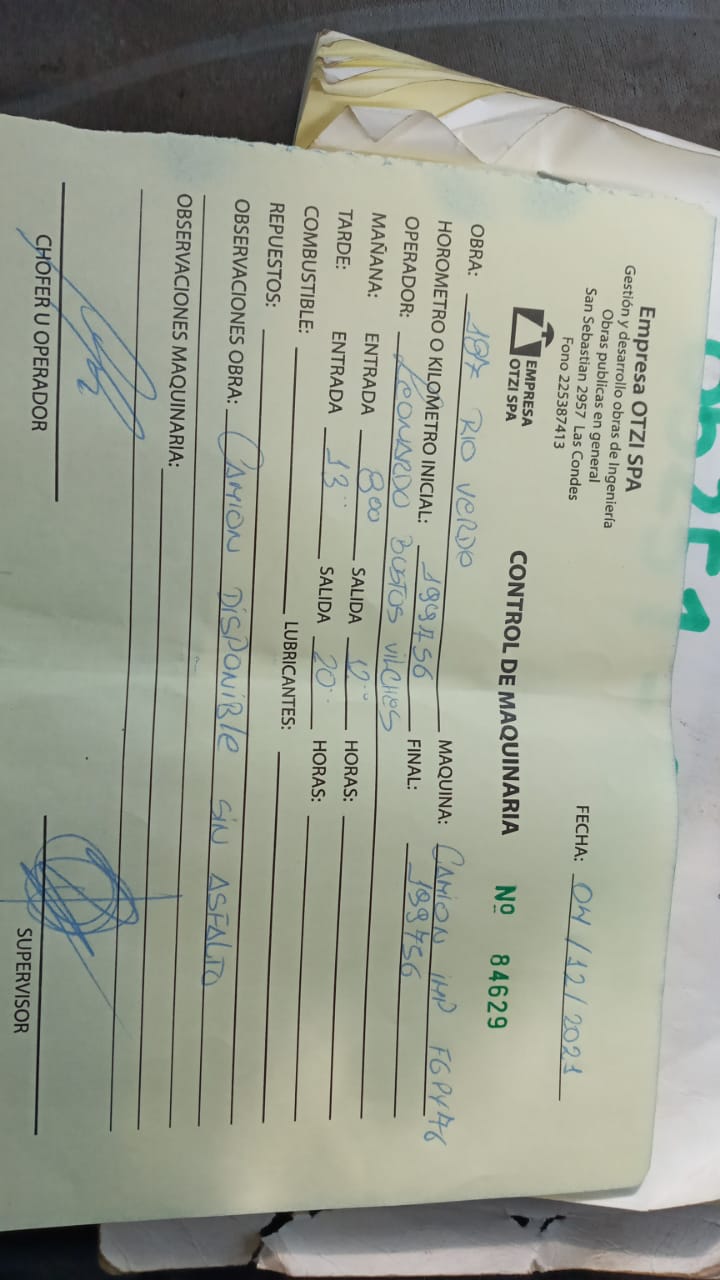 Empresa OTZI SPA
Gestión y desarrollo obras de Ingeniería
Obras publicas en general
San Sebastian 2957 Las Condes
Fono 225387413
EMPRESA
OTZI SPA
FECHA: 04/12/2021
CONTROL DE MAQUINARIA Nº 84629
OBRA: 197 RIO VERDE MAQUINA: CAMION IMP FGPY76
HOROMETRO O KILOMETRO INICIAL: 199756 FINAL: 199756
OPERADOR: LEONARDO BUSTOS VILCHES
MAÑANA: ENTRADA 8:00 SALIDA 12 HORAS:
TARDE: ENTRADA 13 SALIDA 20 HORAS:
COMBUSTIBLE: LUBRICANTES:
REPUESTOS:
OBSERVACIONES OBRA: CAMION DISPONIBLE SIN ASFALTO
OBSERVACIONES MAQUINARIA:
CHOFER U OPERADOR SUPERVISOR